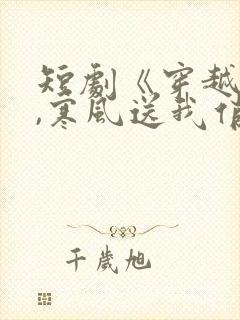 短劇《穿越
,寒風送我情
千歲旭